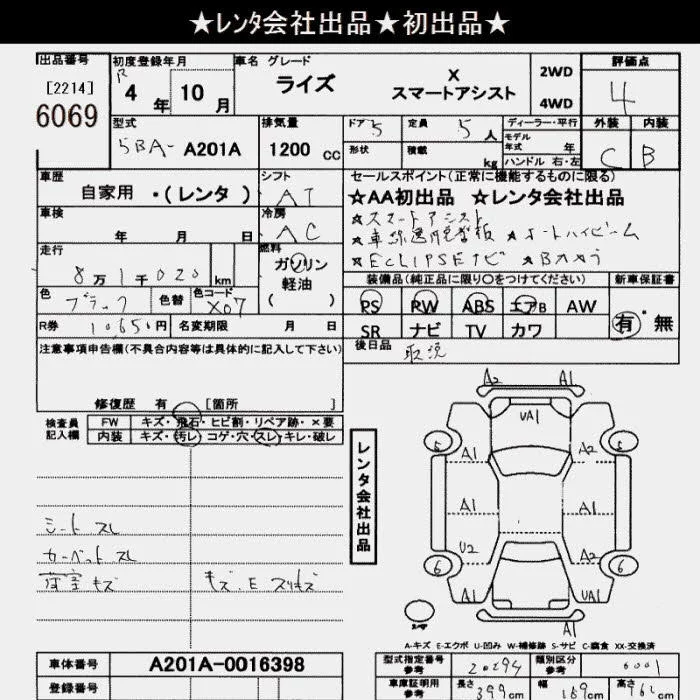 ★レンタ会社出品★初出品★
出品番号 初度登録年月 車名 グレード 評価点
[2214] R 4年 10月 ライズ X スマートアシスト 2WD 4WD 4
6069
型式 排気量 ドア 5 定員 5人 ディーラー・平行 外装 内装
5BA- A201A 1200cc 形状 積載 kg モデル年式 年 ハンドル 右・左 C B
車歴 シフト セールスポイント(正常に機能するものに限る)
自家用 ・(レンタ) AT ☆AA初出品 ☆レンタ会社出品
車検 冷房 ☆スマートアシスト
年 月 日 AC ☆オートハイビーム
走行 燃料 ☆ECLIPSEナビ ☆Bカメラ
8万1千020 km ガソリン 軽油 ( )
装備品(純正品に限り○をつけてください) 新車保証書
色 ブラック 色替 色コード X07 PS PW ABS エアB AW 有・無
R券 10,650円 名変期限 月 日 SR ナビ TV カワ
注意事項申告欄(不具合内容等は具体的に記入して下さい) 後日品 取説
修復歴 有 [箇所 ]
検査員記入欄 FW キズ・飛石・ヒビ割・リペア跡・×要
内装 キズ・汚レ・コゲ・穴・スレ・キレ・破レ
レンタ会社出品
A2 A1
UA1
5 5
A1 A2
A1 A1
U2 A2
6 6
A1 UA1
A1
シート スレ
カーペット スレ
荷室 キズ キズ・E スリキズ
A-キズ E-エクボ U-凹み W-補修跡 S-サビ C-腐食 XX-交換済
車体番号 A201A-0016398 型式指定番号 参考 20294 類別区分 参考 6001
登録番号 車庫証明用 参考 長さ 399cm 幅 169cm 高さ 162cm